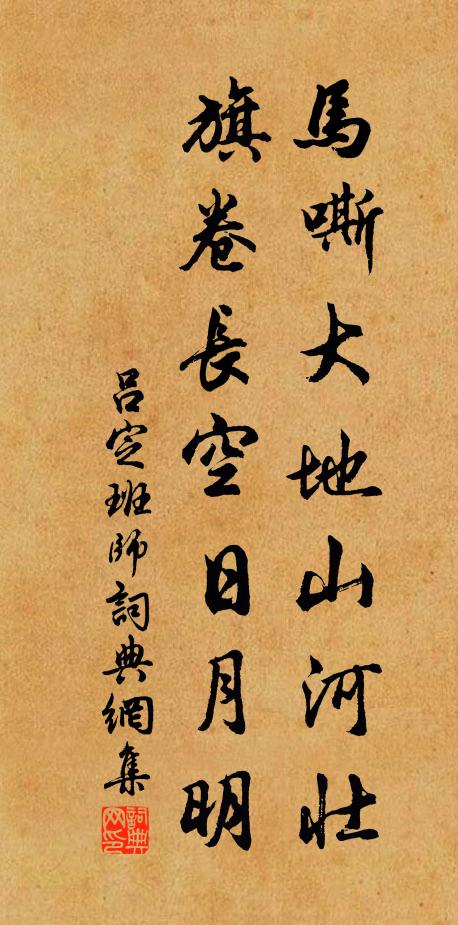 馬嘶大地山河壯
旗卷長空日月明
呂定班師詞典網集
詞典網印